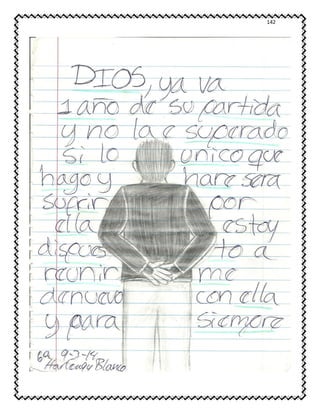 142
DIOS, ya va
1 año de su partida
y no la e superado
si lo unico que
hago y hare sera
sufrir por
ella estoy
dispuesto a
reunirme
denuevo con ella
y para siempre
6a 9-3-14
Blanco